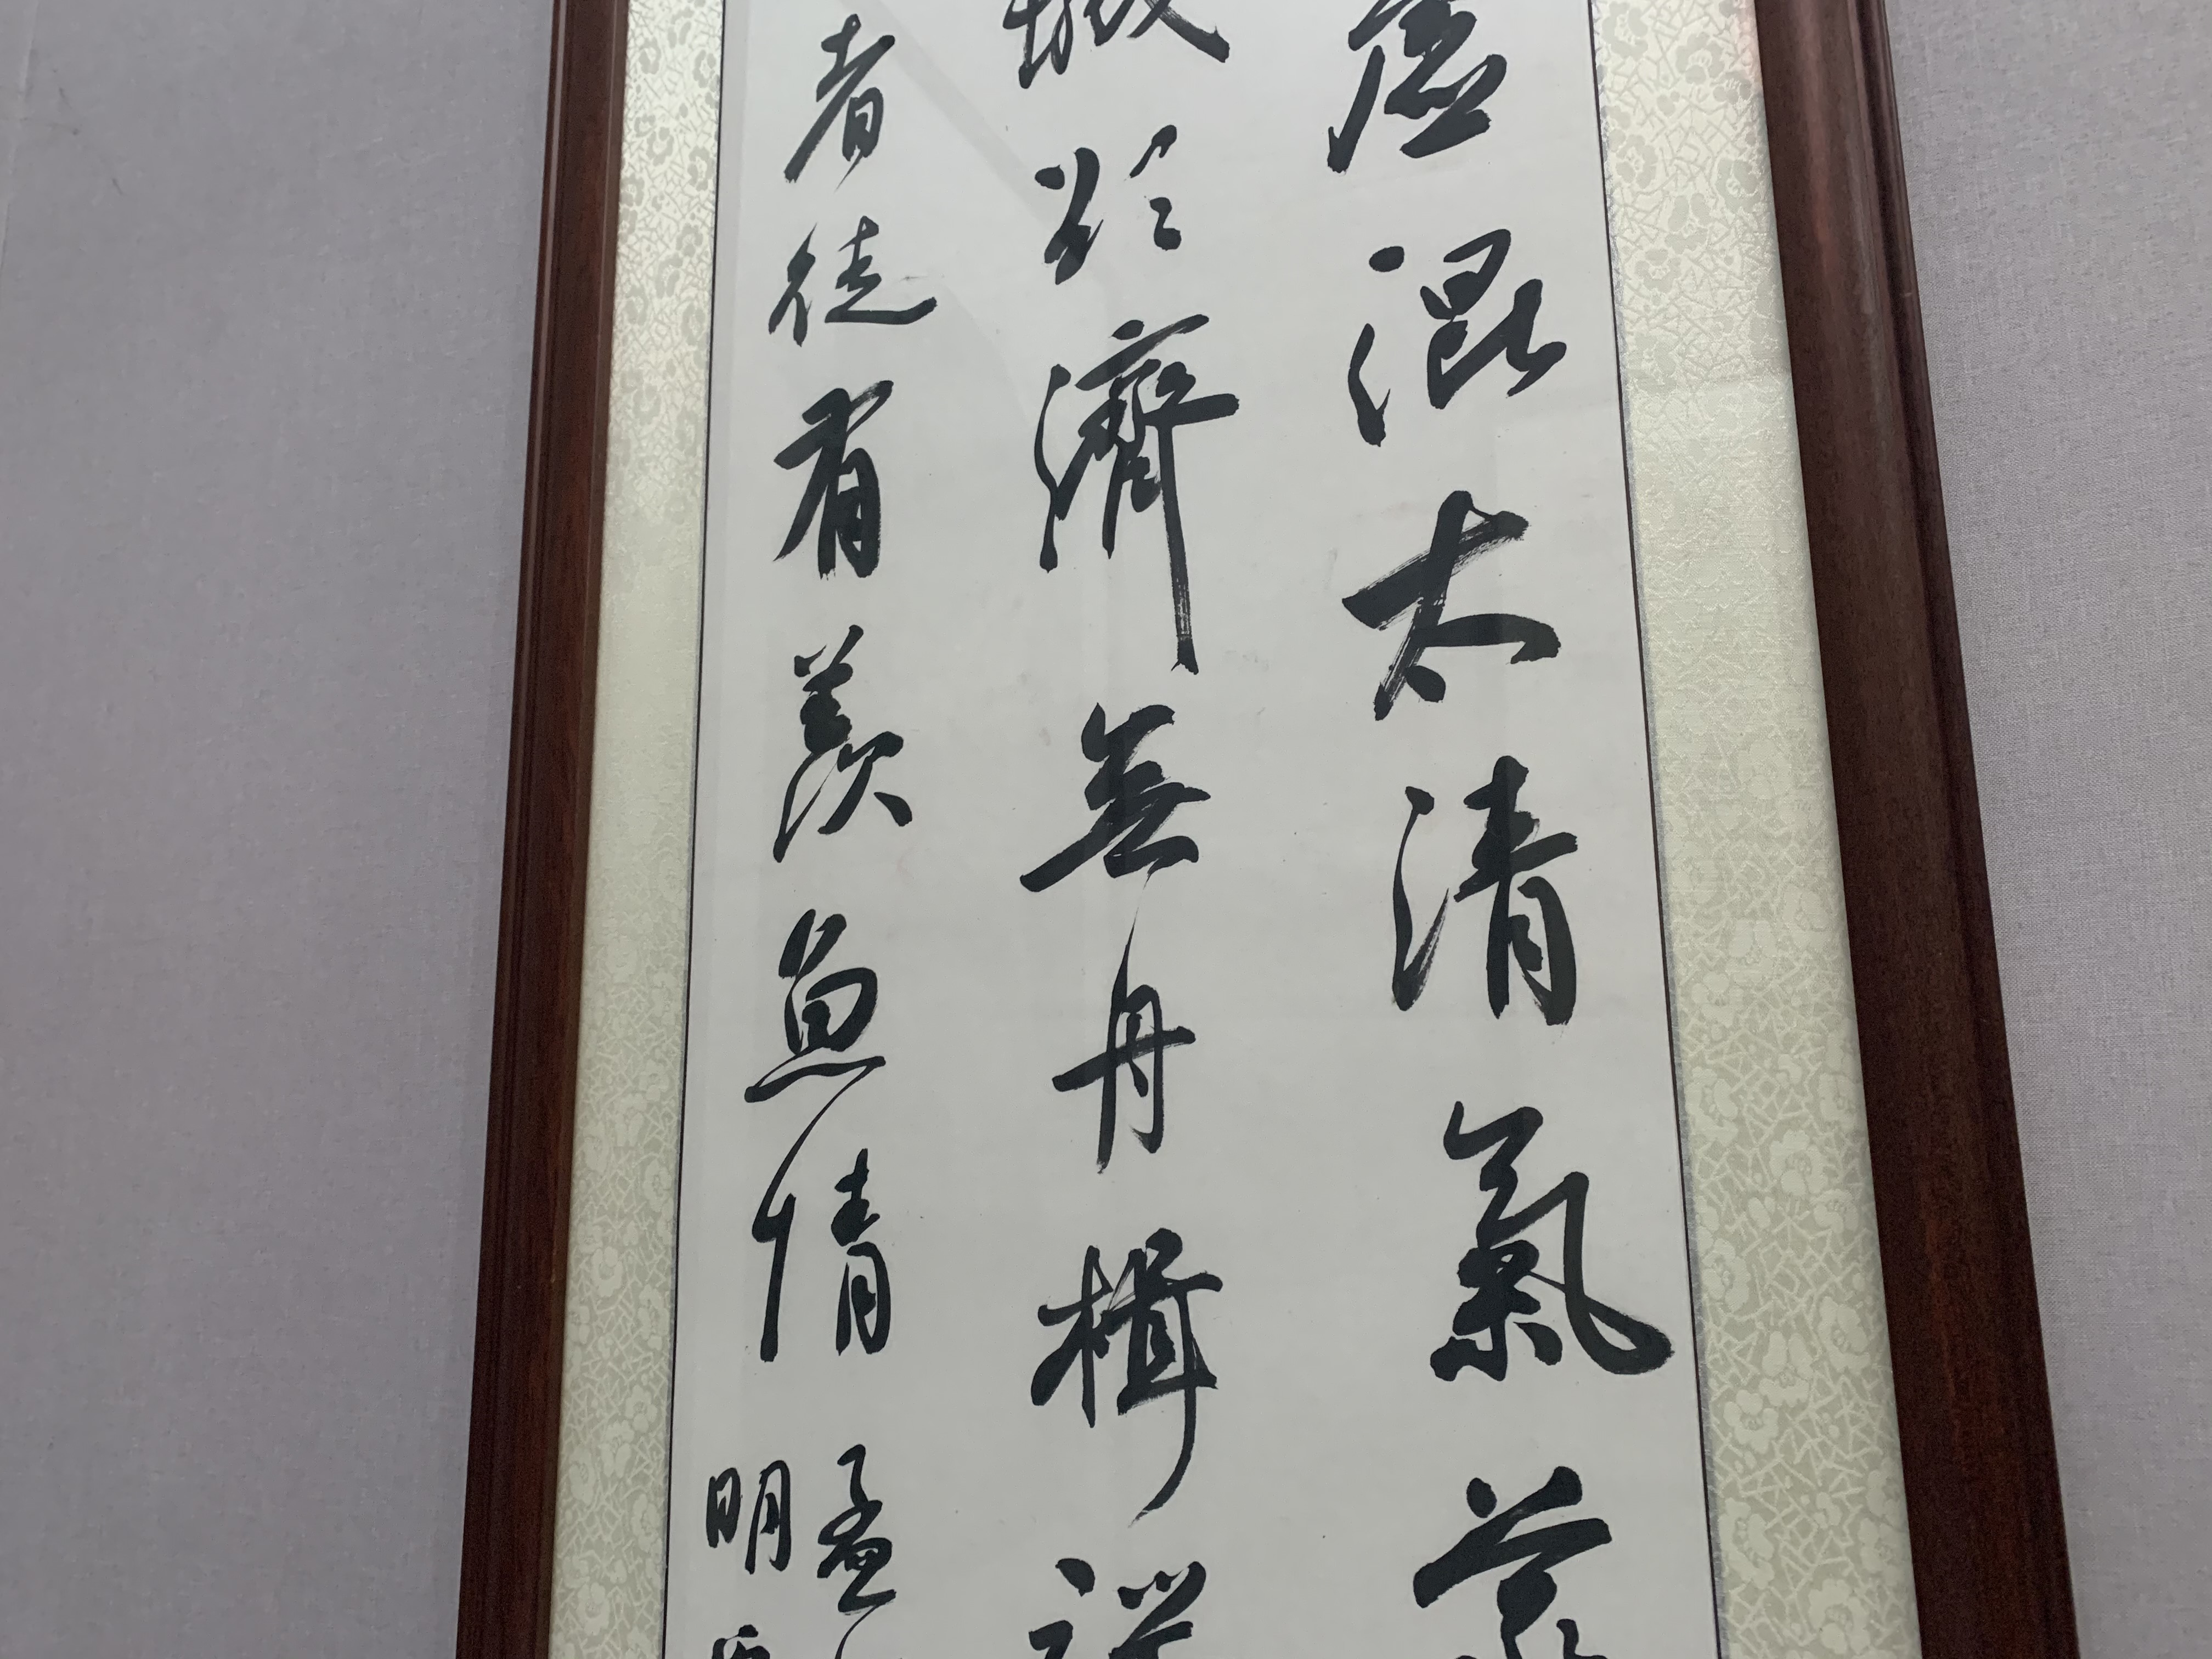 虛混太清氣蒸
城欲濟無舟楫
者徒有羨魚情
孟
明